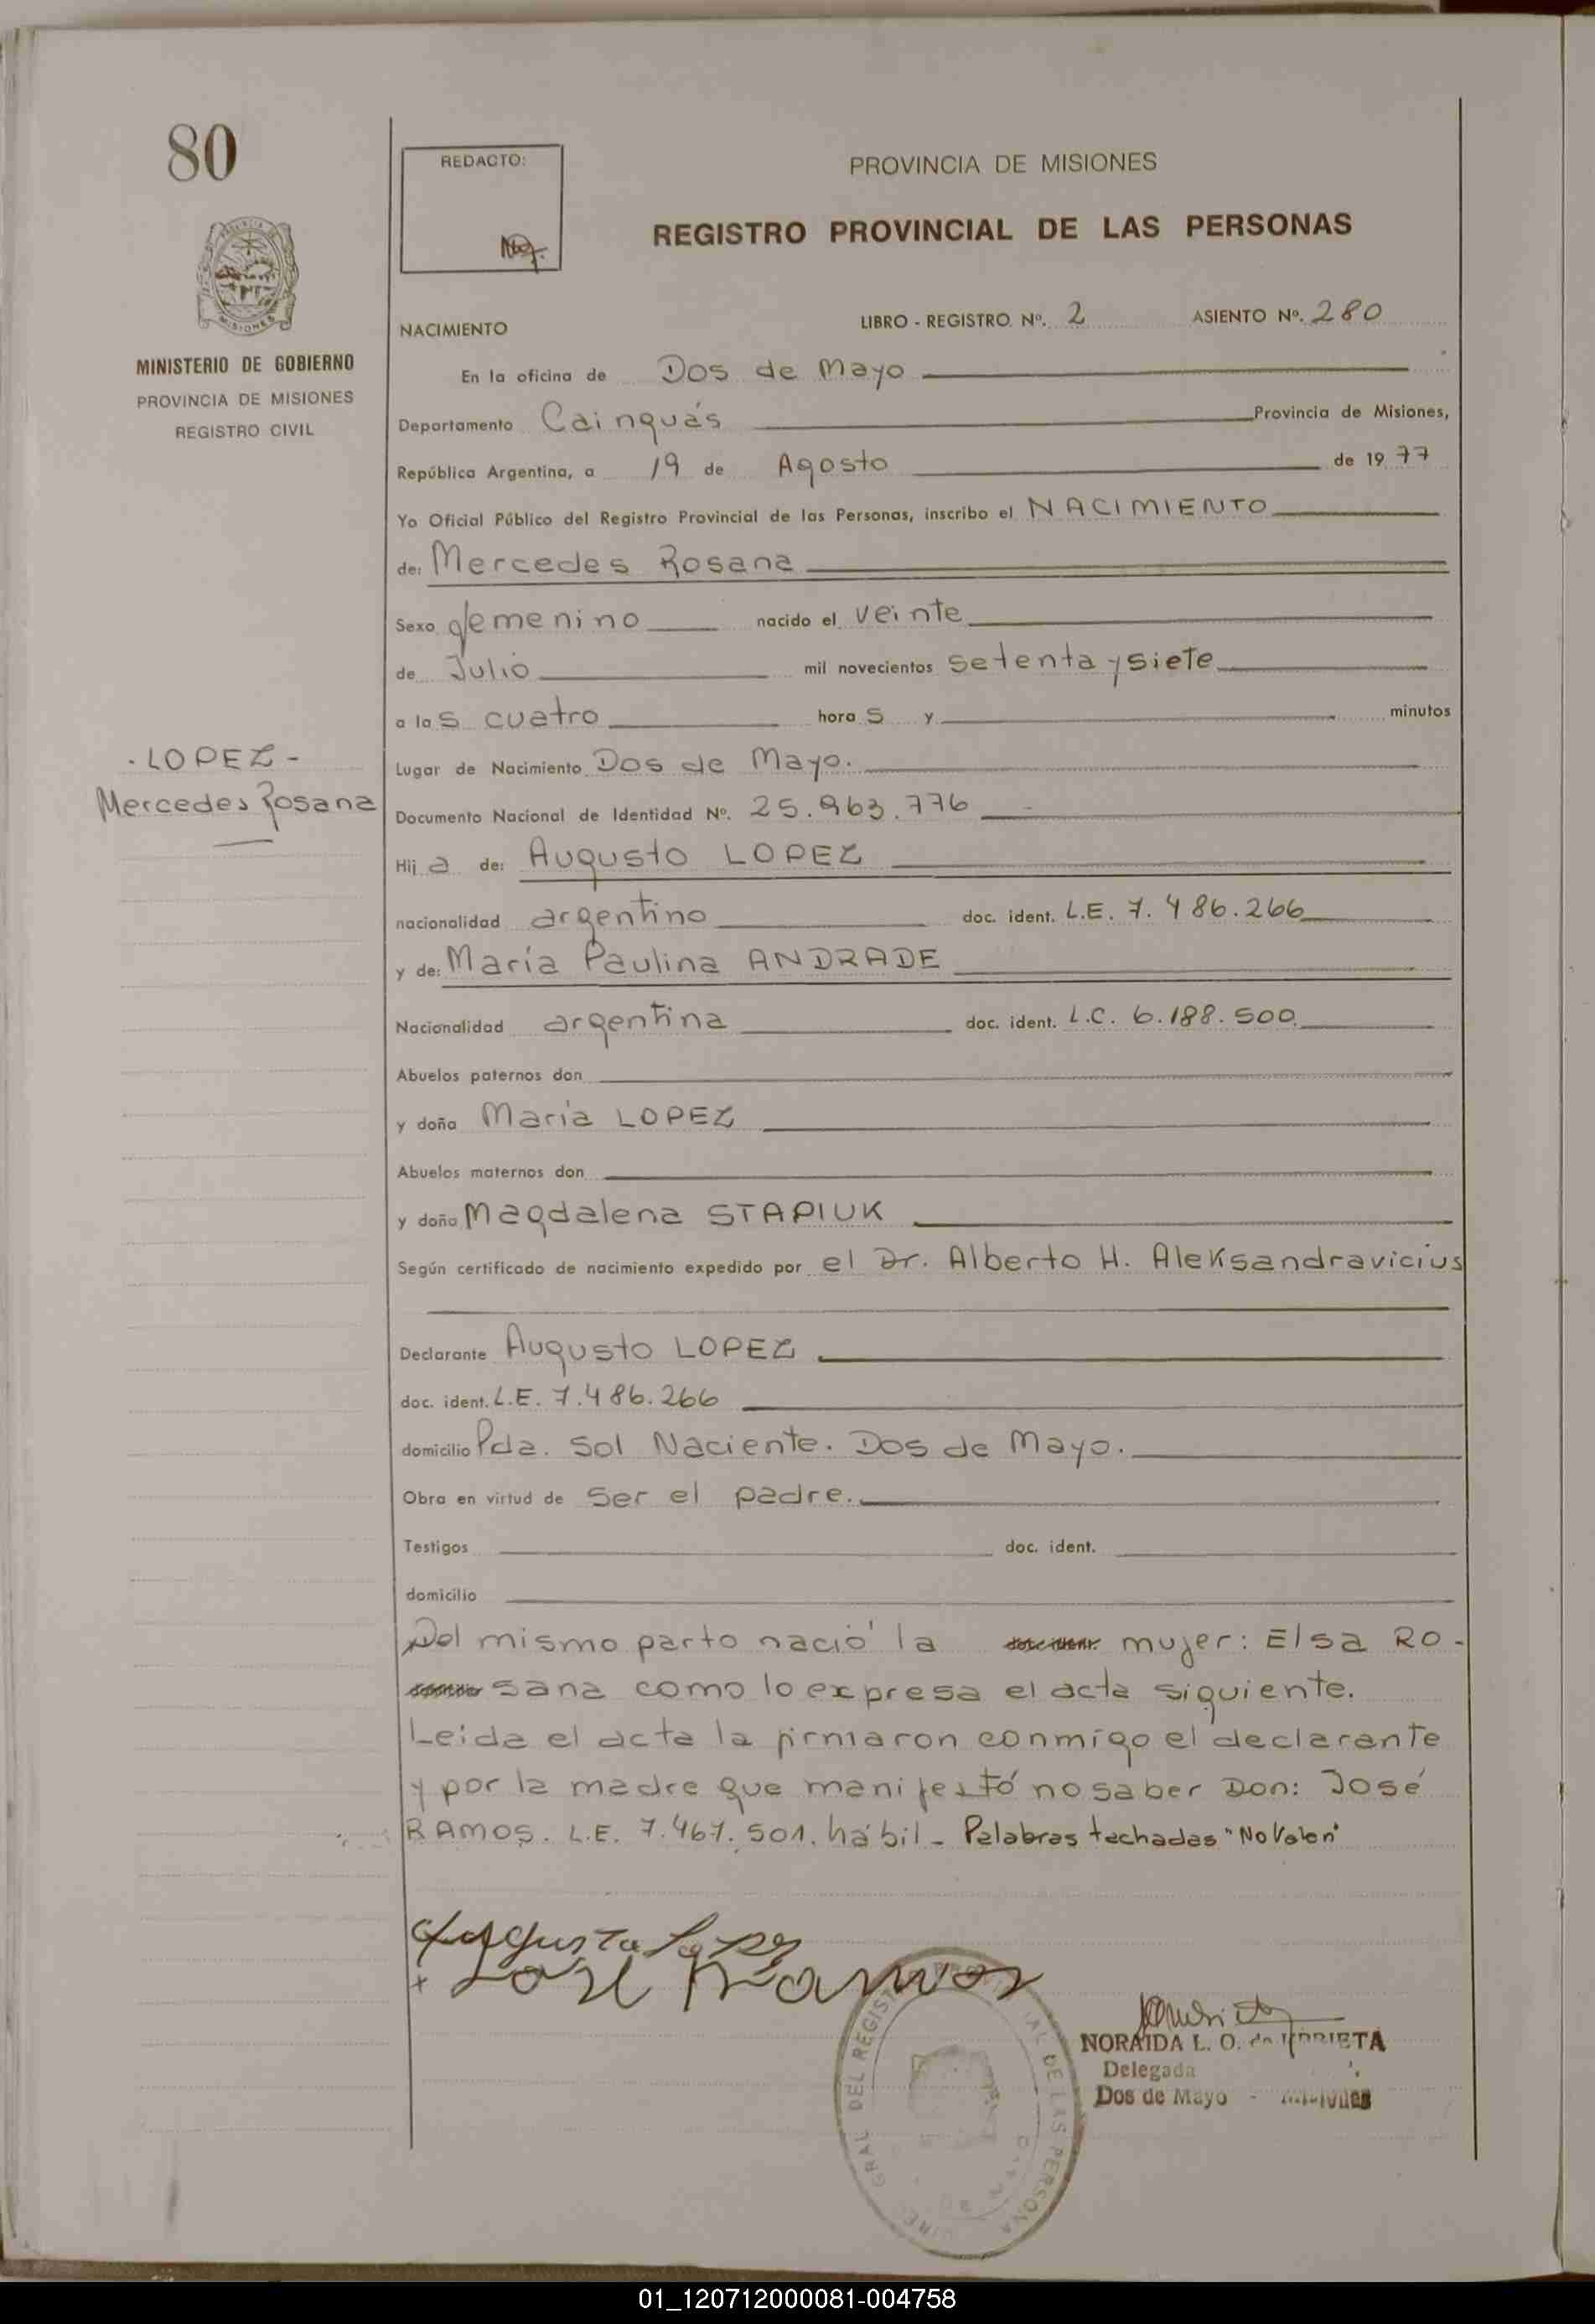 80
REDACTO:
PROVINCIA DE MISIONES
REGISTRO PROVINCIAL DE LAS PERSONAS
MISIONES
MINISTERIO DE GOBIERNO
PROVINCIA DE MISIONES
REGISTRO CIVIL
NACIMIENTO
LIBRO - REGISTRO Nº. 2 ASIENTO Nº. 280
En la oficina de Dos de Mayo
Departamento Cainguás Provincia de Misiones,
República Argentina, a 19 de Agosto de 19 77
Yo Oficial Público del Registro Provincial de las Personas, inscribo el NACIMIENTO
de: Mercedes Rosana
Sexo femenino nacido el veinte
de Julio mil novecientos setenta y siete
a las cuatro horas y minutos
- LOPEZ -
Mercedes Rosana
Lugar de Nacimiento Dos de Mayo.
Documento Nacional de Identidad Nº. 25.963.776
Hija de: Augusto LOPEZ
nacionalidad argentino doc. ident. L.E. 7.486.266
y de: María Paulina ANDRADE
Nacionalidad argentina doc. ident. L.C. 6.188.500
Abuelos paternos don
y doña María LOPEZ
Abuelos maternos don
y doña Magdalena STAPIUK
Según certificado de nacimiento expedido por el Dr. Alberto H. Aleksandravicius
Declarante Augusto LOPEZ
doc. ident. L.E. 7.486.266
domicilio Pda. Sol Naciente. Dos de Mayo.
Obra en virtud de ser el padre.
Testigos doc. ident.
domicilio
Del mismo parto nació la mujer: Elsa RO-
sana como lo expresa el acta siguiente.
Leida el acta la firmaron conmigo el declarante
y por la madre que manifestó no saber Don: José
RAMOS. L.E. 7.467.501. hábil - Palabras tachadas "No Valen"
Augusto Lopez
+ José Ramos
GRAL DEL REGIST
DE LAS PERSONA
NORAIDA L. O. de URRIETA
Delegada
Dos de Mayo - Misiones
01_120712000081-004758